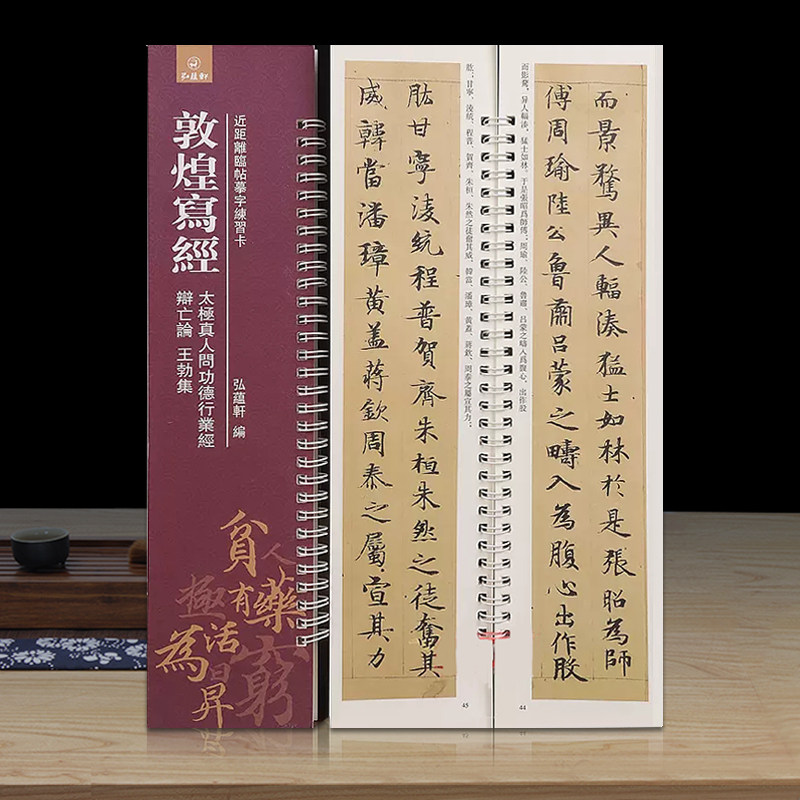 弘蘊軒
近距離臨帖摹字練習卡
敦煌寫經
太極真人問功德行業經
辯亡論 王勃集
弘蘊軒 編
貧
人
極
有
藥
為
活
窮
昇
而影騖,异人輻湊,猛士如林。于是張昭爲師傅,周瑜、陸公、魯肅、吕蒙之疇入爲腹心,出作股
而景騖異人輻湊猛士如林於是張昭為師
傅周瑜陸公魯肅吕蒙之疇入為腹心出作股
44
肱;甘寧、淩統、程普、賀齊、朱桓、朱然之徒奮其威,韓當、潘璋、黄蓋、蔣欽、周泰之屬宣其力;
肱甘寧淩統程普賀齊朱桓朱然之徒奮其
威韓當潘璋黄盖蒋欽周泰之屬宣其力
45